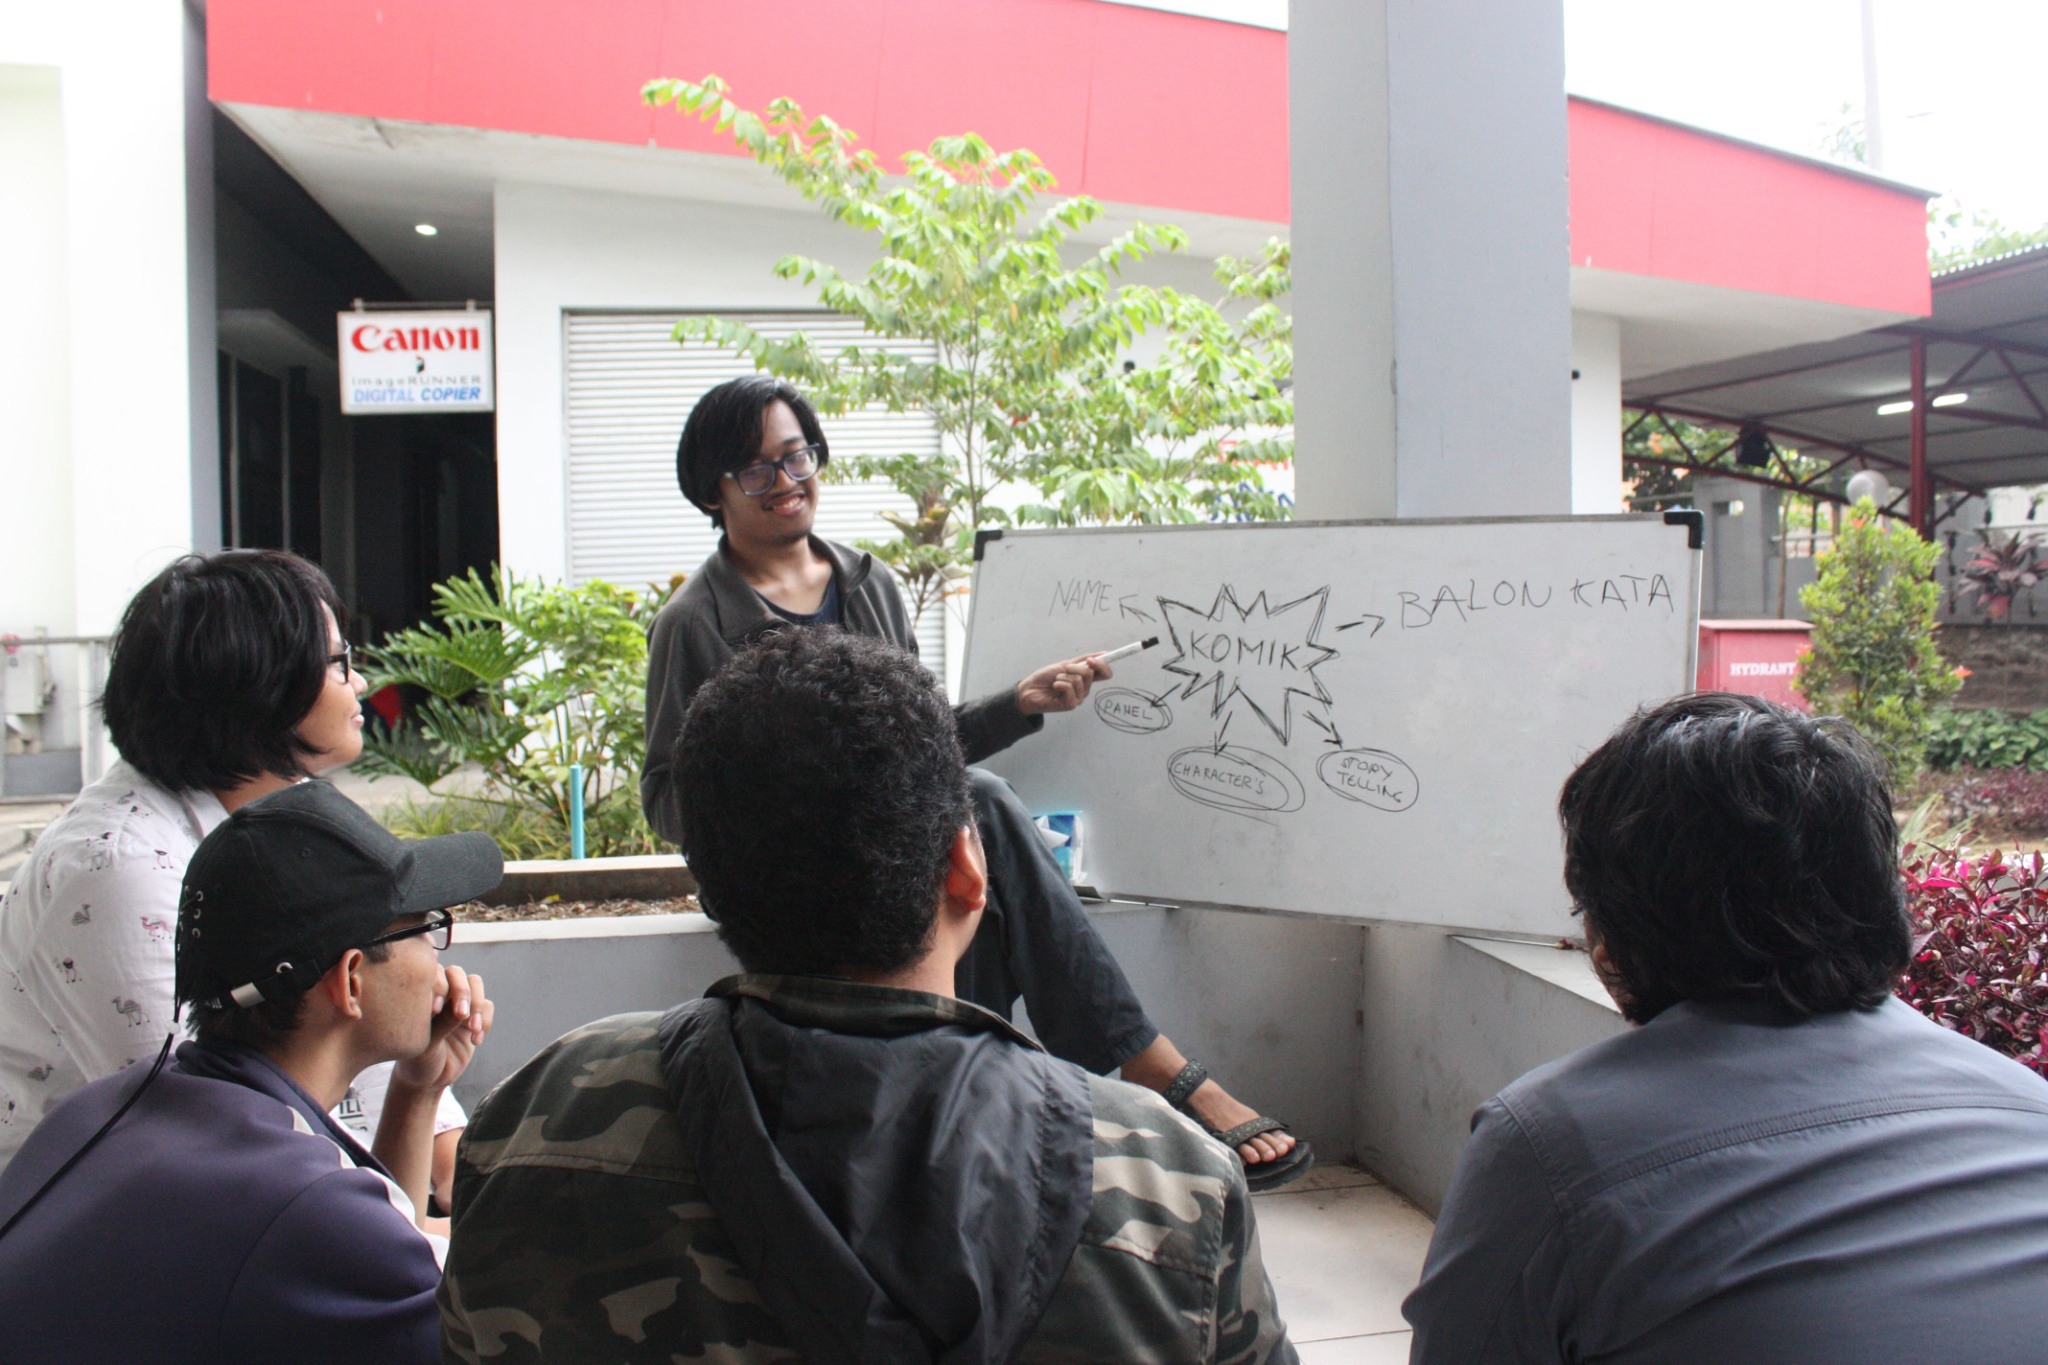 Canon
imageRUNNER
DIGITAL COPIER
NAME
KOMIK
BALON KATA
PANEL
CHARACTER'S
STORY
TELLING
HYDRANT